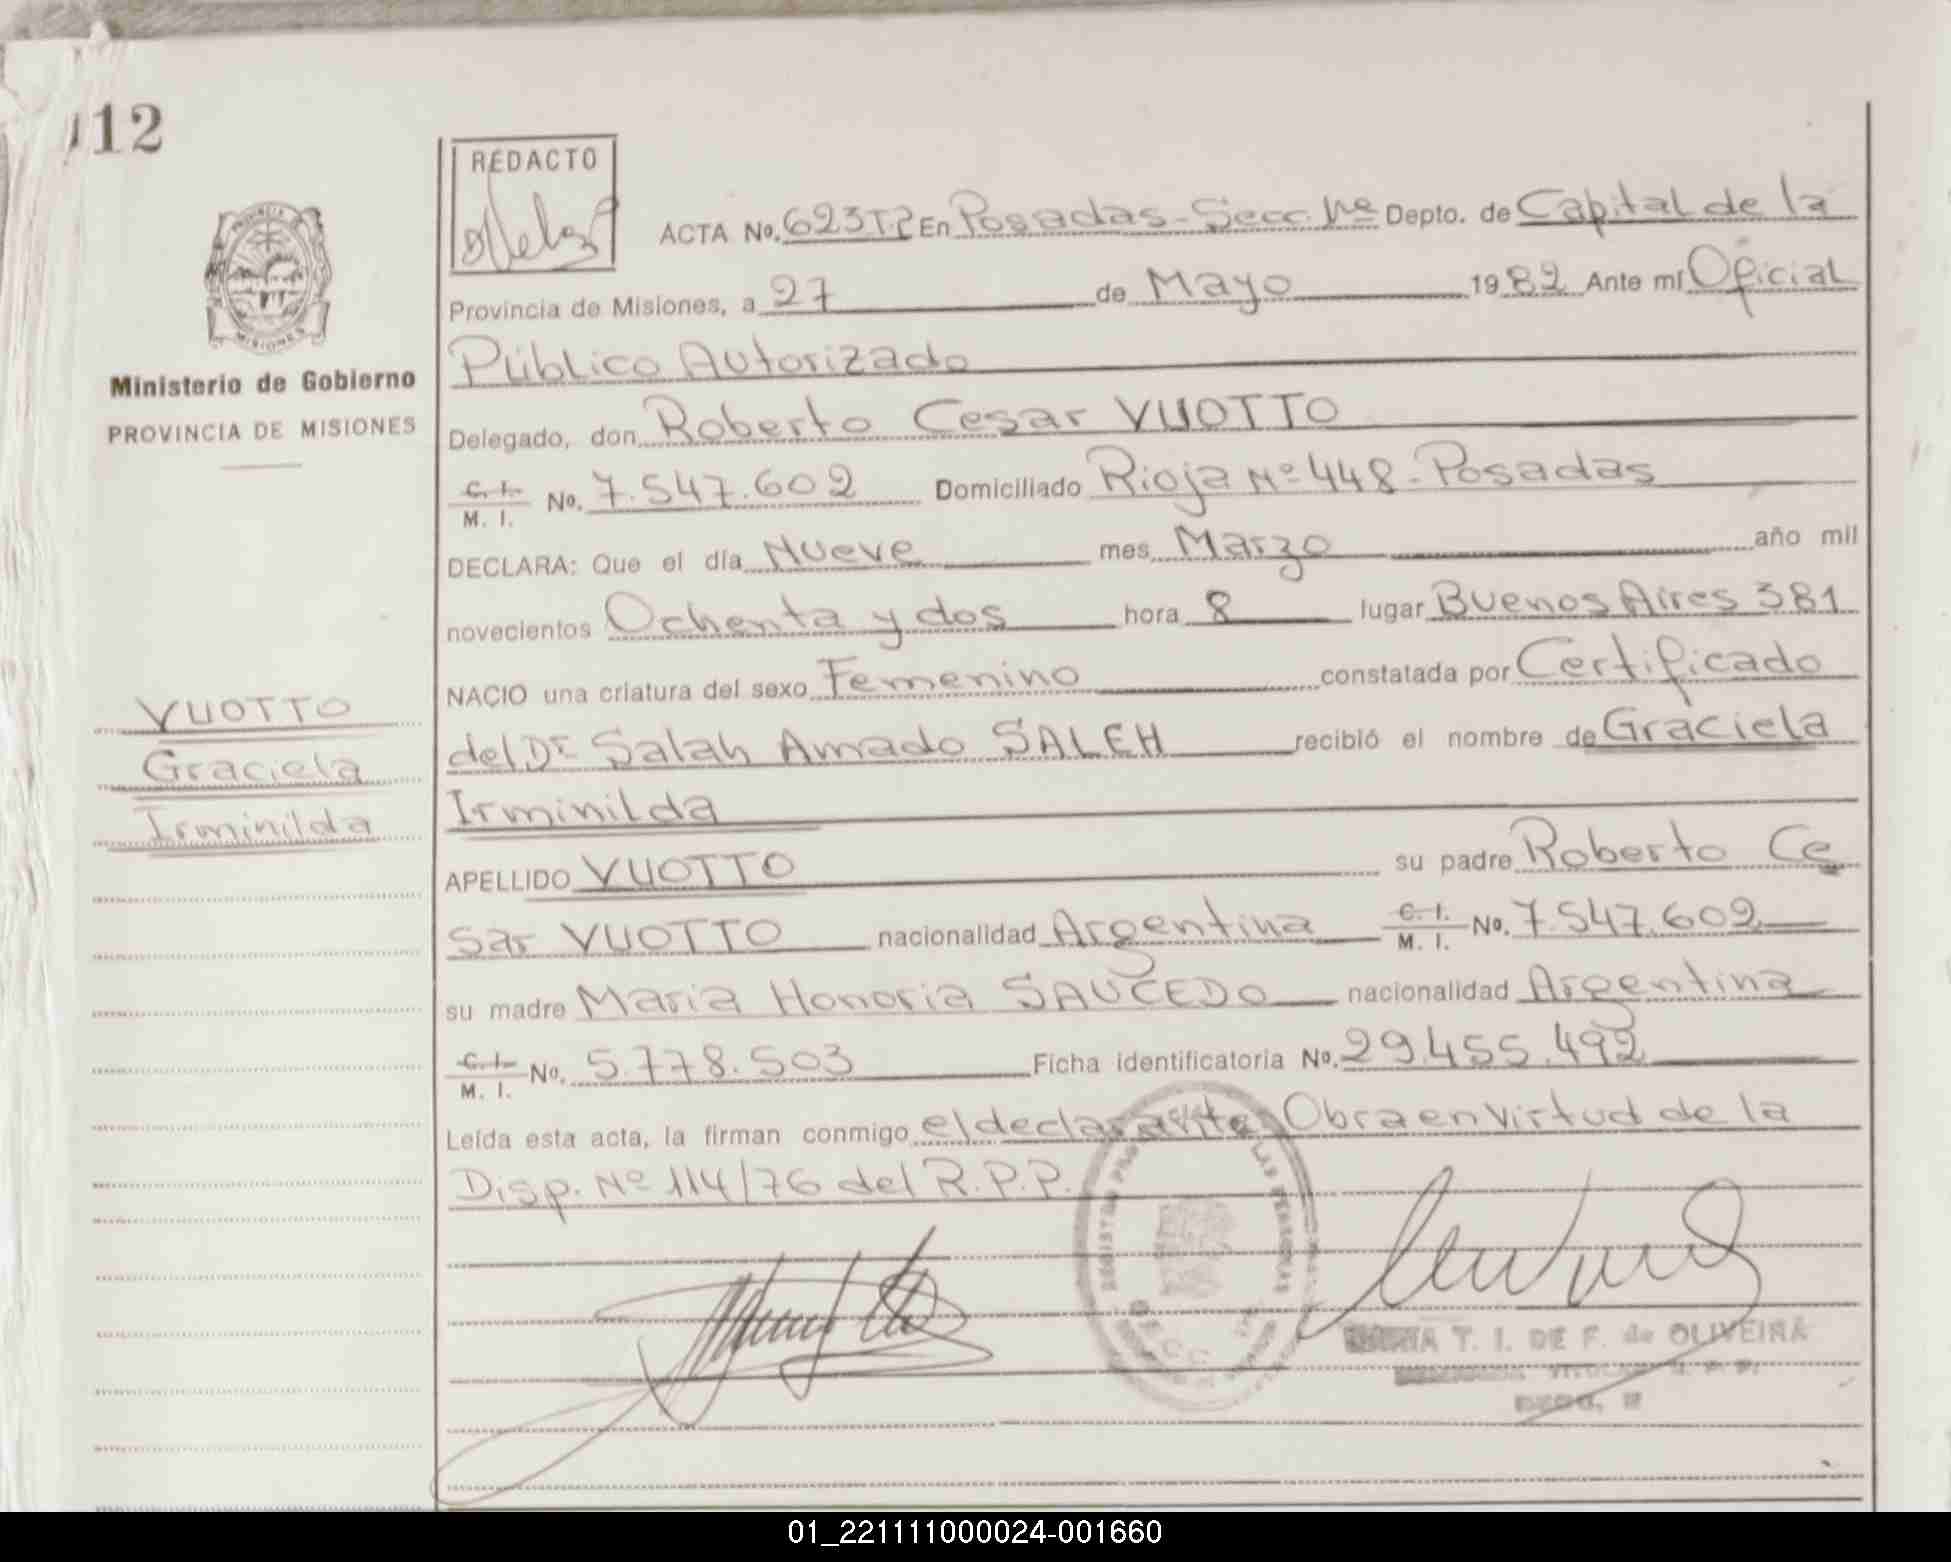 112
REDACTO
PROVINCIA
MISIONES
Ministerio de Gobierno
PROVINCIA DE MISIONES
ACTA No. 623T.2 En Posadas - Secc. 1ra Depto. de Capital de la
Provincia de Misiones, a 27 de Mayo 1982 Ante mí Oficial
Público Autorizado
Delegado, don Roberto Cesar VUOTTO
C. I. / M. I. No. 7.547.602 Domiciliado Rioja Nº 448 - Posadas
DECLARA: Que el día Nueve mes Marzo año mil
novecientos Ochenta y dos hora 8 lugar Buenos Aires 381
NACIO una criatura del sexo Femenino constatada por Certificado
del Dr Salah Amado SALEH recibió el nombre de Graciela
Irminilda
APELLIDO VUOTTO su padre Roberto Ce
sar VUOTTO nacionalidad Argentina C. I. / M. I. No. 7.547.602
su madre Maria Honoria SAUCEDO nacionalidad Argentina
C. I. / M. I. No. 5.778.503 Ficha identificatoria No. 29.455.492
Leída esta acta, la firman conmigo el declarante. Obra en virtud de la
Disp. Nº 114/76 del R.P.P.
VUOTTO
Graciela
Irminilda
LAS PERSONAS
T. I. DE F. de OLIVEIRA
01_221111000024-001660